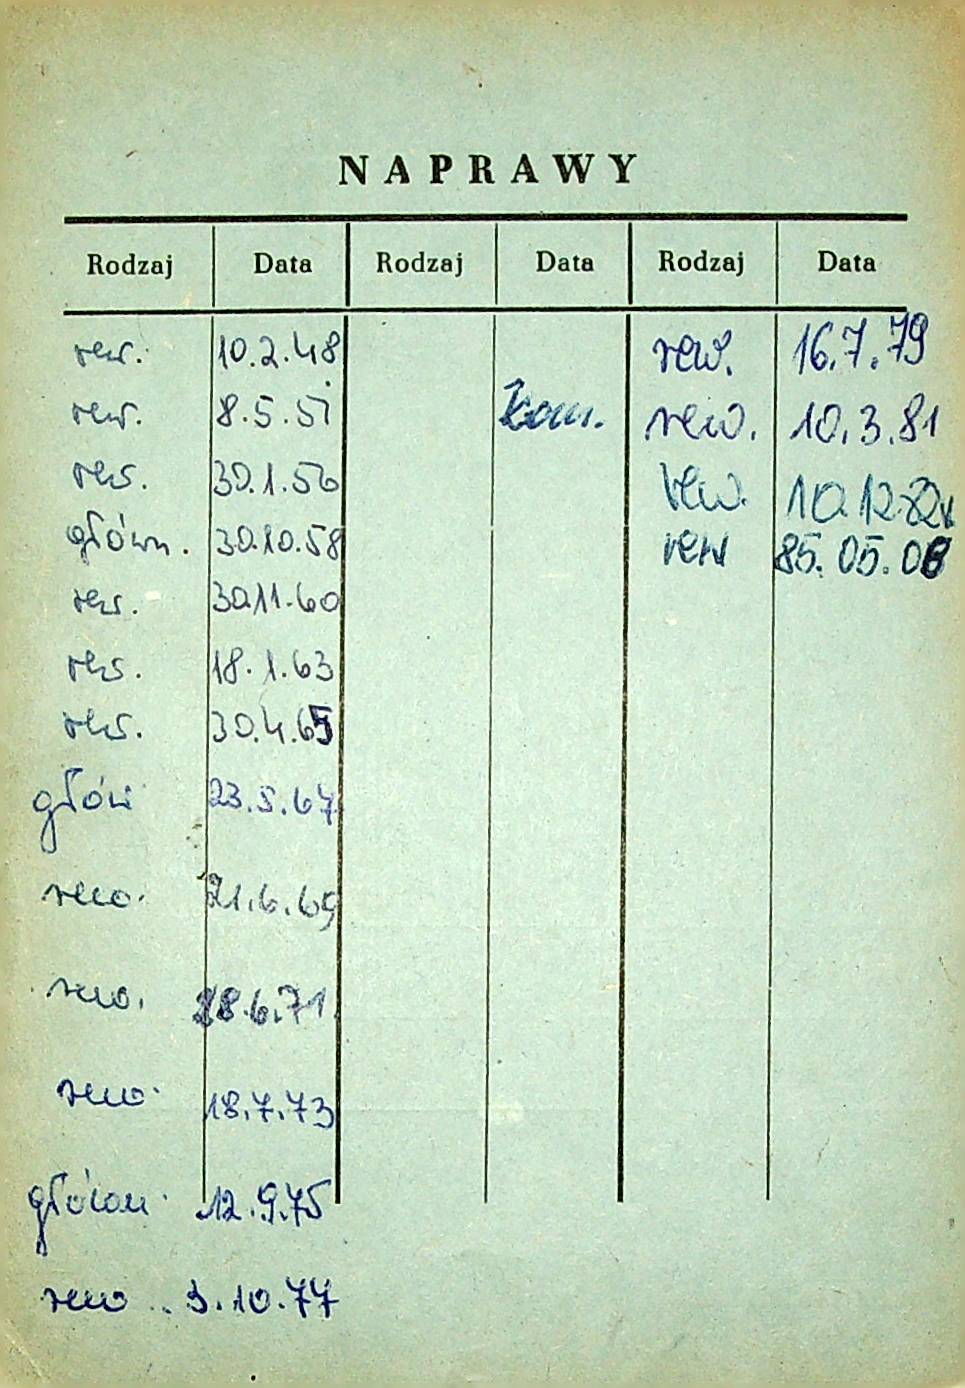 NAPRAWY
Rodzaj Data Rodzaj Data Rodzaj Data
rew. 10.2.48
rew. 8.5.51
rew. 30.1.56
główn. 30.10.58
rew. 30.11.60
rew. 18.1.63
rew. 30.4.65
głów 23.5.67
rew. 21.6.69
rew. 28.6.71.
rew. 18.7.73
główn. 12.9.75
rew .. 3.10.77
Kom.
rew. 16.7.79
rew. 10.3.81
rew. 10.12.82r
rew 85.05.08